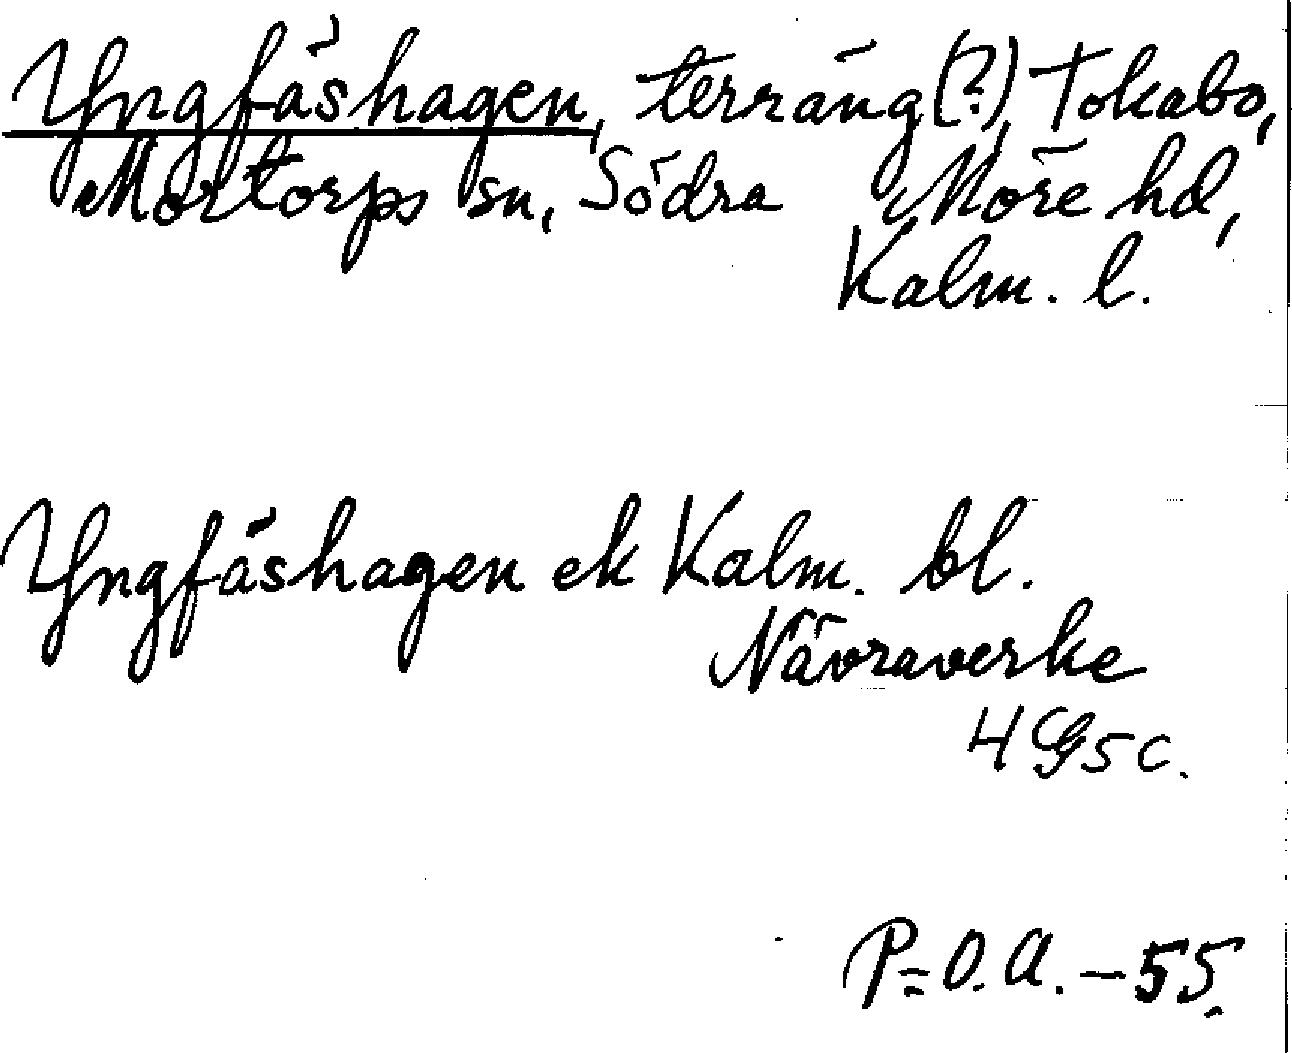 Yngfåshagen, terräng(?), Tokabo,
Mortorps sn, Södra Möre hd,
Kalm. l.
Yngfåshagen ek Kalm. bl.
Nävraverke
4G5c.
P=O.A.-55.